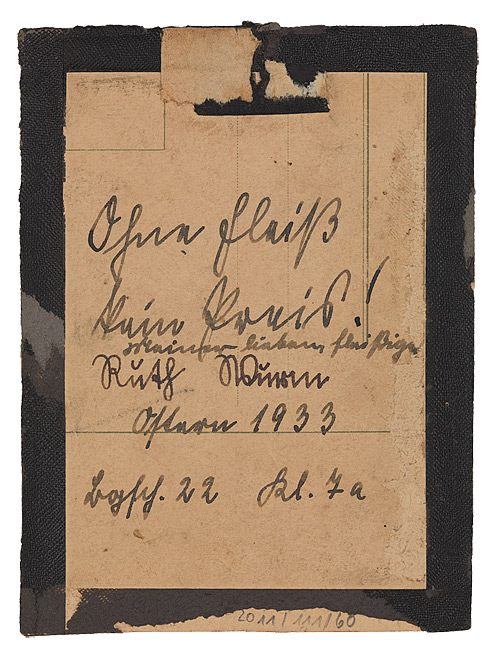 Ohne Fleiß
kein Preis!
Meiner lieben, fleißigen
Ruth Wurm
Ostern 1933
Bgsch. 22 Kl. 7a
2011/111/60